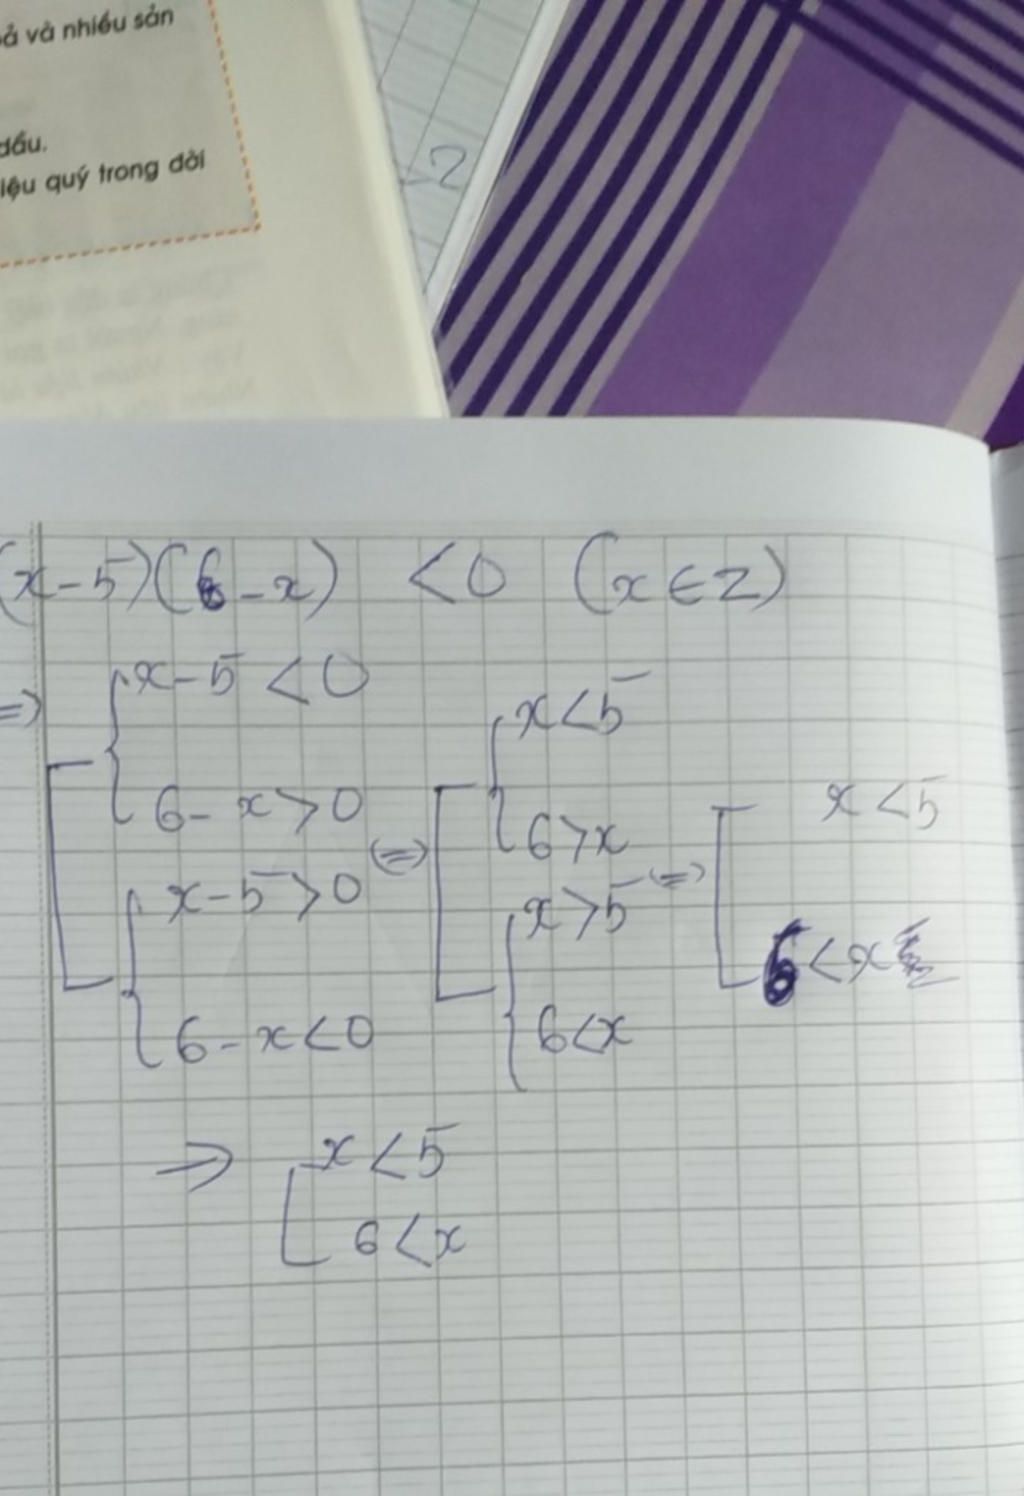 ả và nhiều sản
dầu.
iệu quý trong đời
2
(x-5)(6-x) <0 (x∈Z)
=> [ { x-5 <0
6-x>0
{ x-5>0
6-x<0
<=> [ { x<5
6>x
{ x>5
6<x
<=> [ x<5
6<x
=> [ x<5
6<x